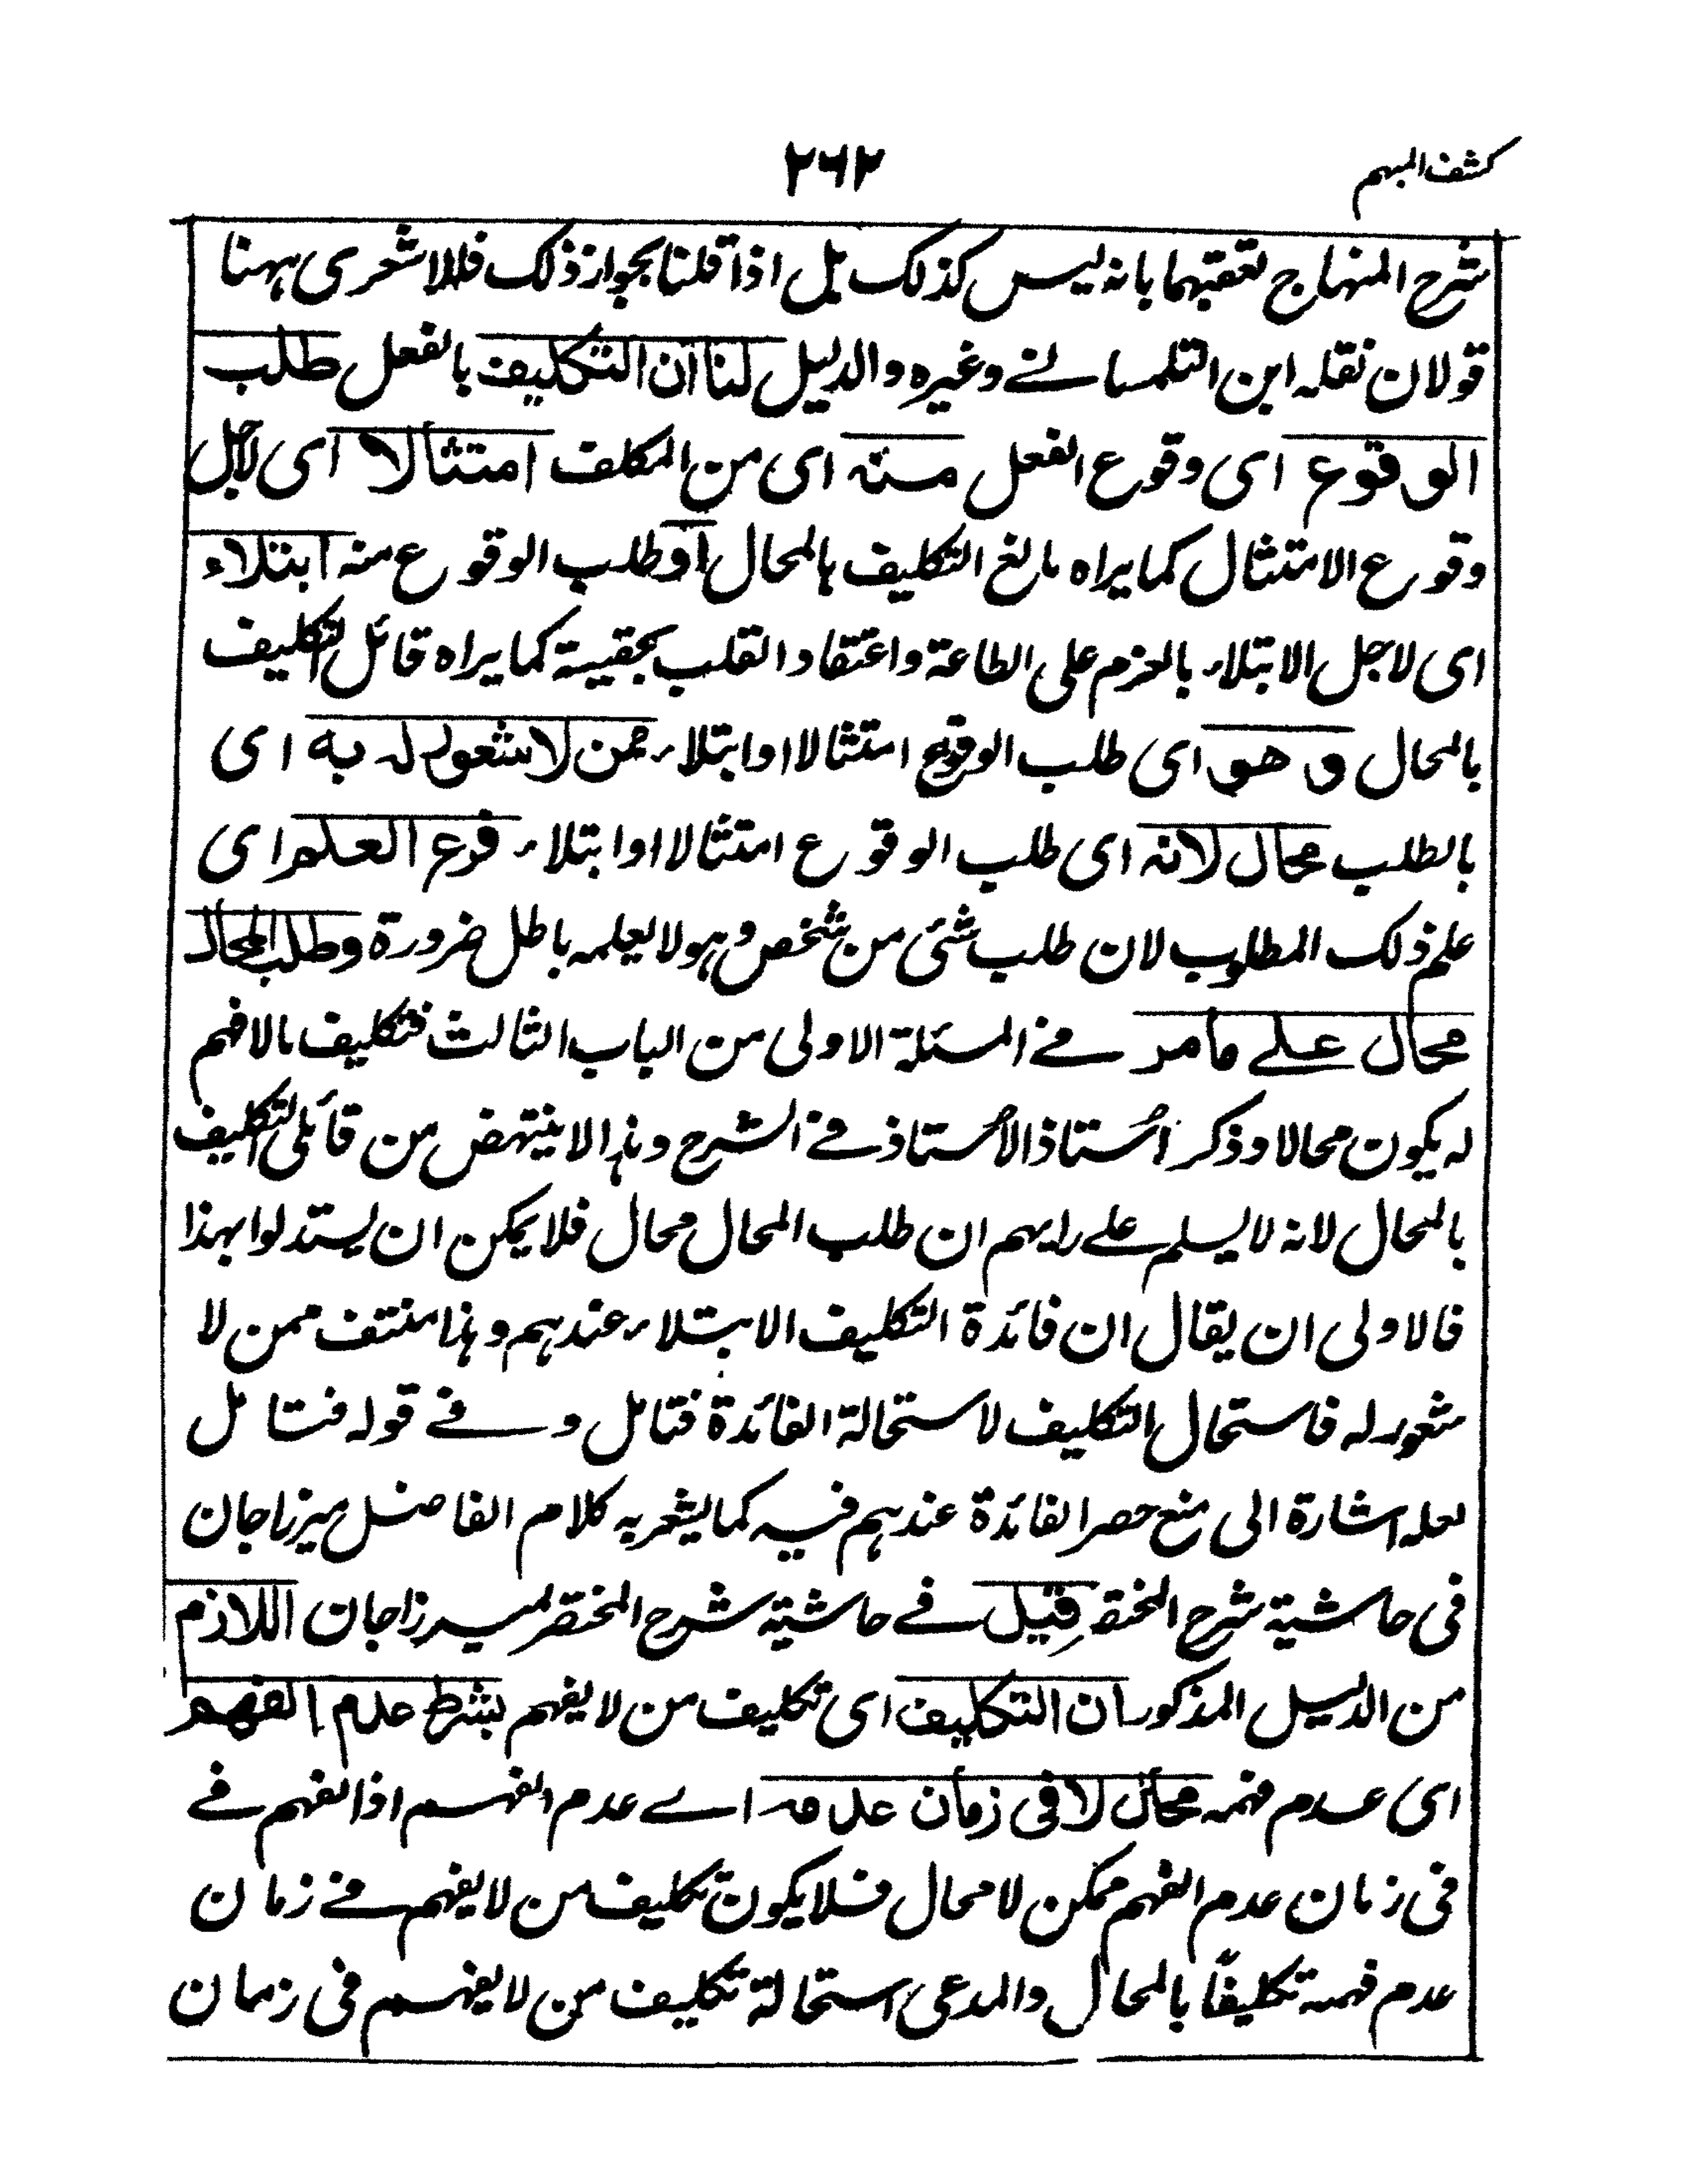 كشف المبهم
٢٦٢
شرح المنهاج تعقبهما بانه ليس كذلك بل اذا قلنا بجواز ذلك فللاشعرى ههنا
قولان نقله ابن التلمسانے وغيره والدليل لنا ان التكليف بالفعل طلب
الوقوع اى وقوع الفعل منه اى من المكلف امتثالا اى لاجل
وقوع الامتثال كما يراه مانع التكليف بالمحال او طلب الوقوع منه ابتلاء
اى لاجل الابتلاء بالعزم على الطاعة واعتقاد القلب بحقيته كما يراه قائل التكليف
بالمحال وهو اى طلب الوقوع امتثالا او ابتلاء ممن لا شعور له به اى
بالطلب محال لانه اى طلب الوقوع امتثالا او ابتلاء فرع العلم اى
علم ذلك المطلوب لان طلب شئى من شخص وهو لا يعلمه باطل ضرورة وطلب المحال
محال علے مامر فے المسئلة الاولى من الباب الثالث فتكليف مالا فهم
له يكون محالا وذكر استاذ الاستاذ فے الشرح وهذا لا ينتهض من قائلى التكليف
بالمحال لانه لا يسلم علے رايهم ان طلب المحال محال فلا يمكن ان يستدلوا بهذا
فالاولى ان يقال ان فائدة التكليف الابتلاء عندهم وهذا منتف ممن لا
شعور له فاستحال التكليف لاستحالة الفائدة فتامل وفے قوله فتامل
لعله اشارة الى منع حصر الفائدة عندهم فيه كما يشعر به كلام الفاضل ميرزاجان
فى حاشية شرح المختصر قيل فے حاشية شرح المختصر لميرزاجان اللازم
من الدليل المذكور ان التكليف اى تكليف من لا يفهم بشرط عدم الفهم
اى عدم فهمه محال لا فى زمان عدمه اے عدم الفهم اذ الفهم فے
فى زمان عدم الفهم ممكن لا محال فلا يكون تكليف من لا يفهم فے زمان
عدم فهمه تكليفًا بالمحال والمدعى استحالة تكليف من لا يفهم فى زمان